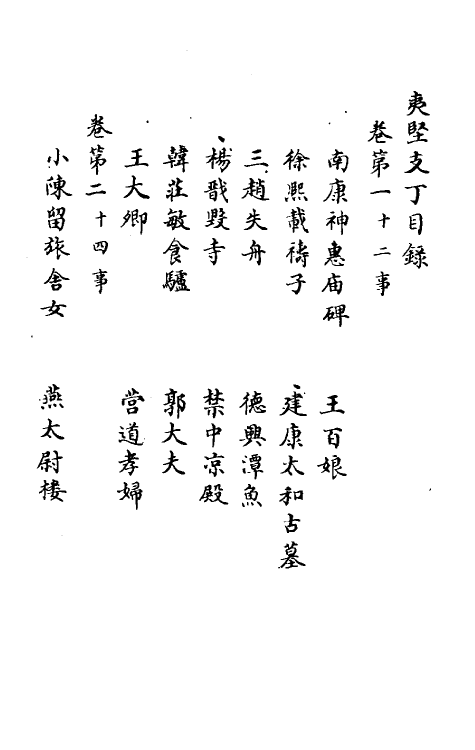 夷堅支丁目錄
卷第一十二事
南康神惠庙碑　王百娘
徐熙載禱子　建康太和古墓
三趙失舟　德興潭魚
楊戩毀寺　禁中凉殿
韓莊敏食驢　郭大夫
王大卿　营道孝婦
卷第二十四事
小陳留旅舍女　燕太尉樓